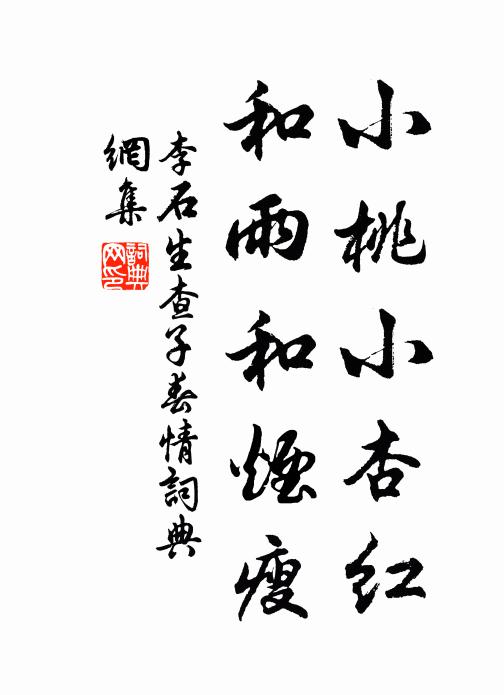 小桃小杏红
和雨和煙瘦
李石生查子春情詞典
網集
詞典网印